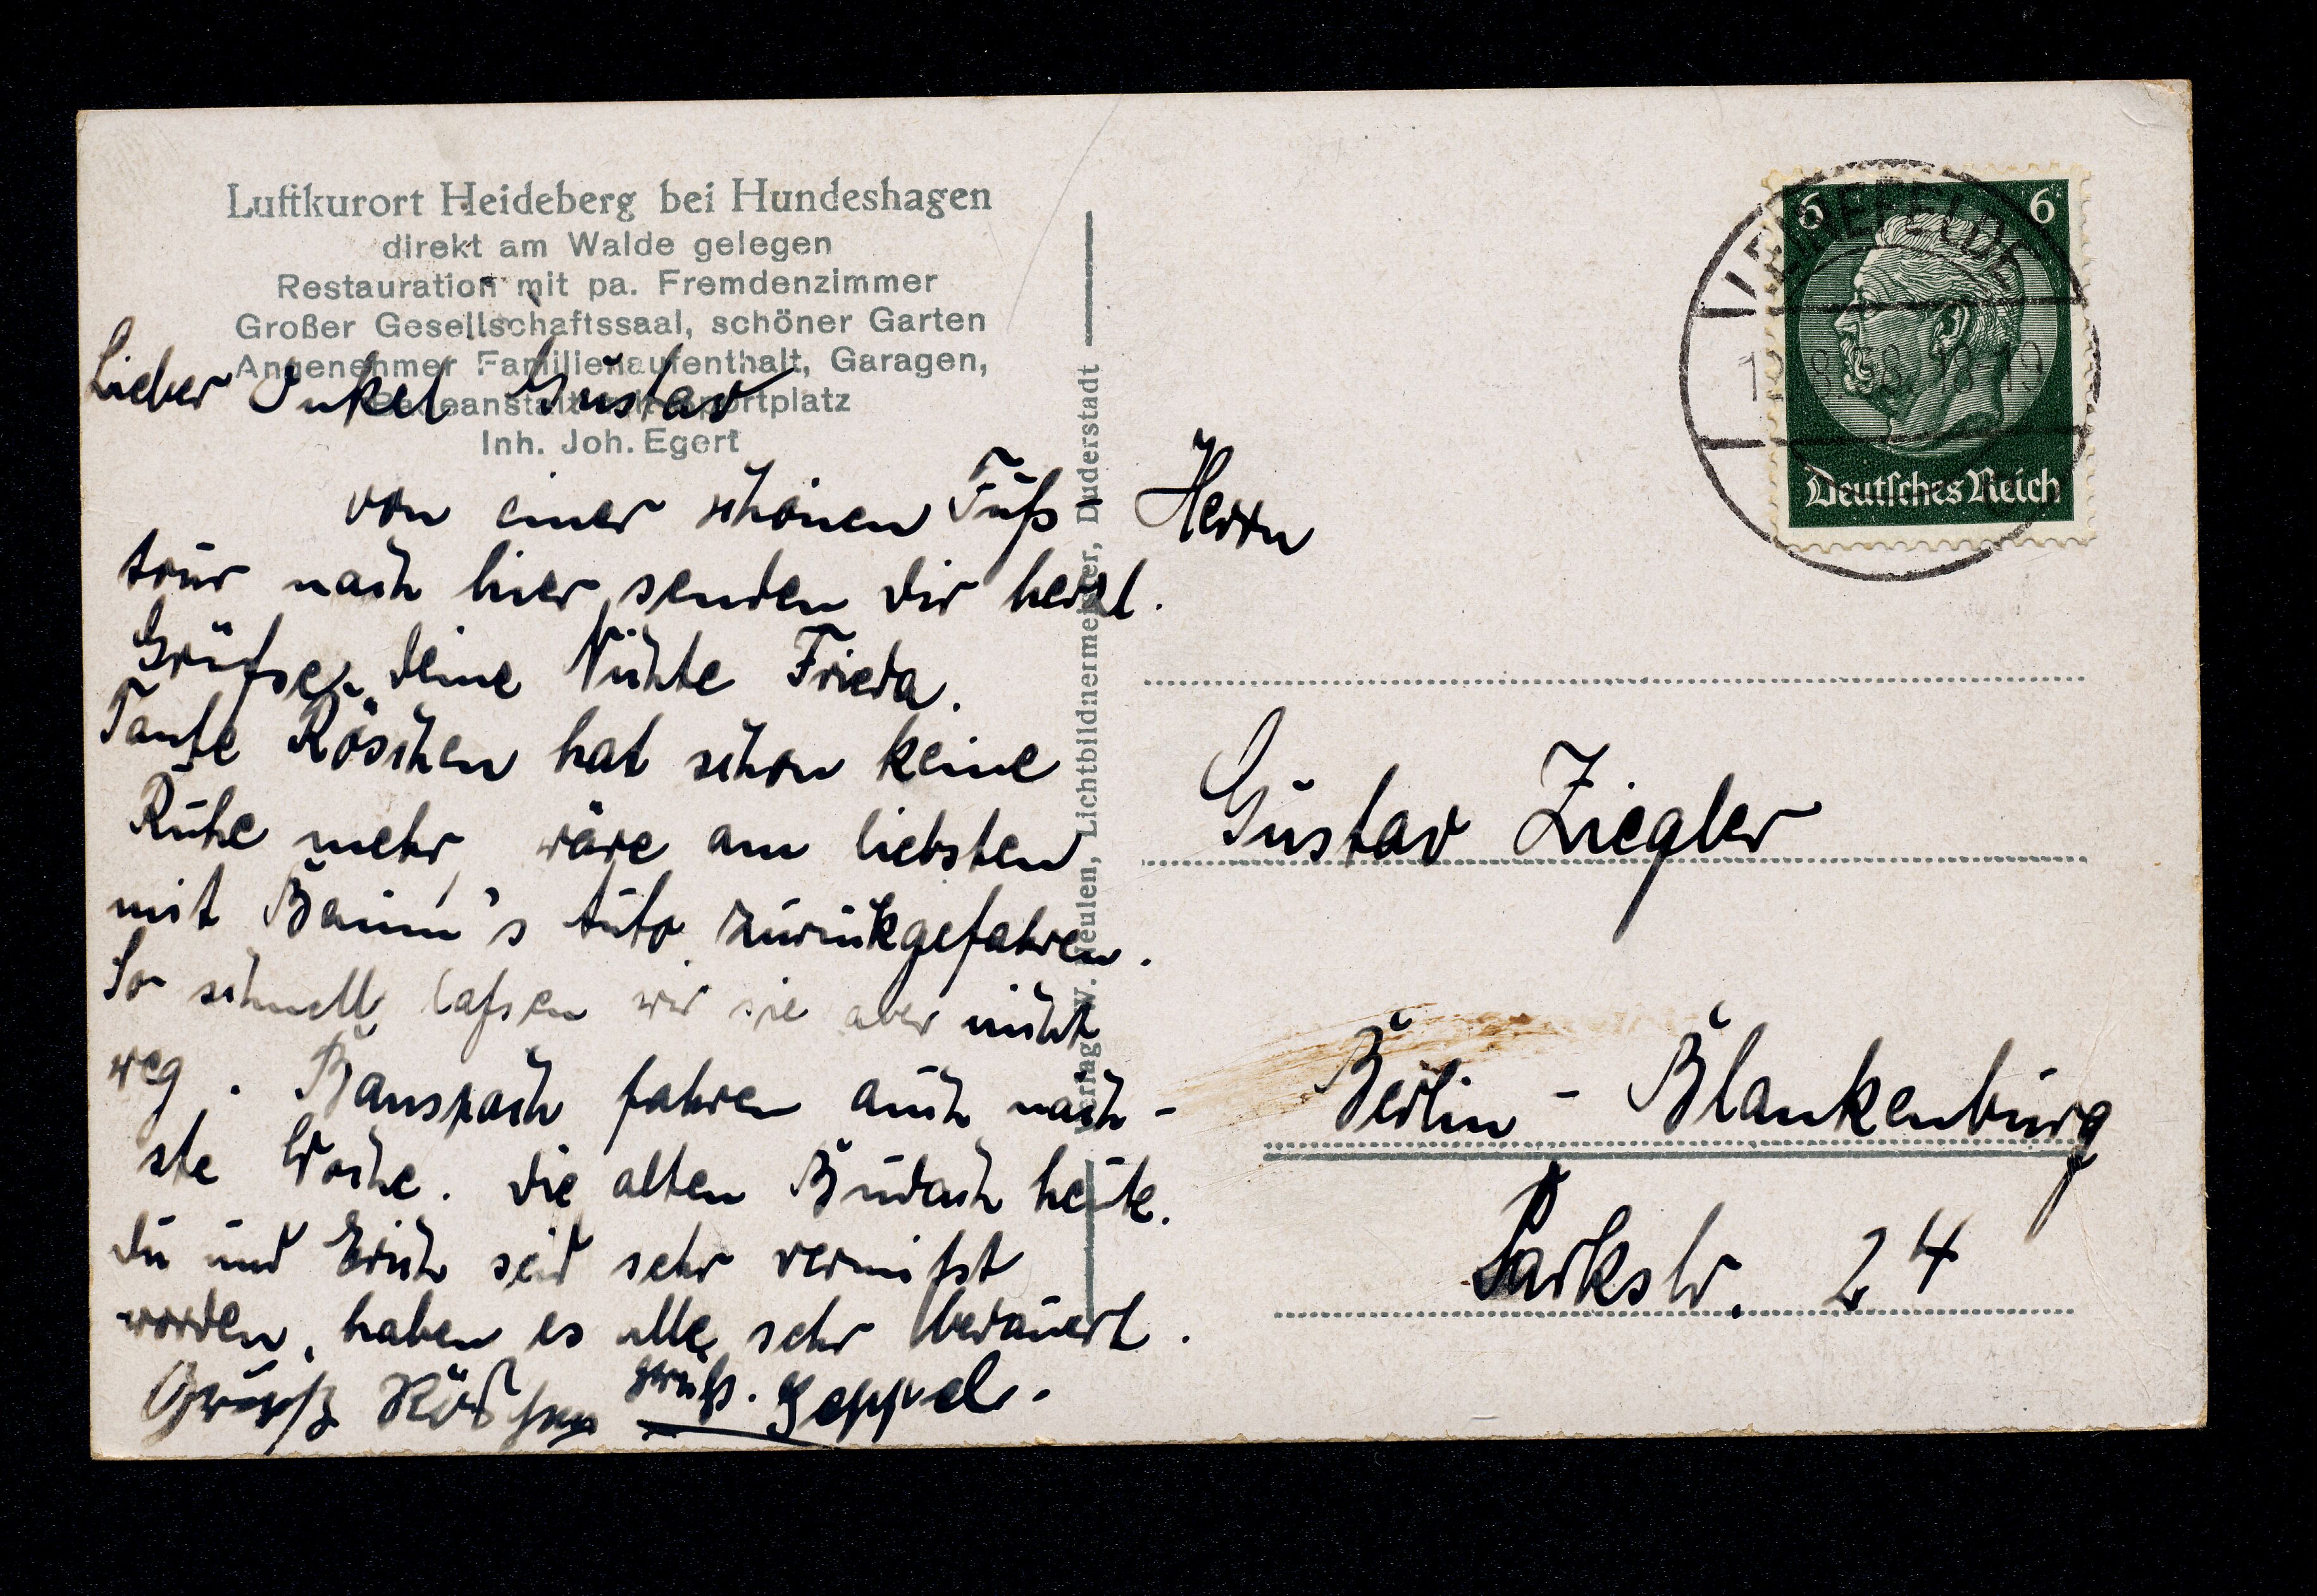 Luftkurort Heideberg bei Hundeshagen
direkt am Walde gelegen
Restauration mit pa. Fremdenzimmer
Großer Gesellschaftssaal, schöner Garten
Angenehmer Familienaufenthalt, Garagen,
Sportplatz
Inh. Joh. Egert
Lieber Onkel Gustav
von einer schönen Fuß-
tour nach hier senden dir herzl.
Grüße, deine Nichte Frieda.
Tante Röschen hat schon keine
Ruhe mehr, wäre am liebsten
mit Baum's Auto zurückgefahren.
So schnell laßen wir sie aber nicht
weg. fahren auch näch-
ste Woche. die alten heute.
du und Erich seid sehr vermißt
worden, haben es alle sehr bedauert.
Gruß Röschen Gruß. Seppel.
Verlag W. Neulen, Lichtbildnermeister, Duderstadt
6 6
Deutsches Reich
8.38. 18-19
Herrn
Gustav Ziegler
Berlin - Blankenburg
Parkstr. 24